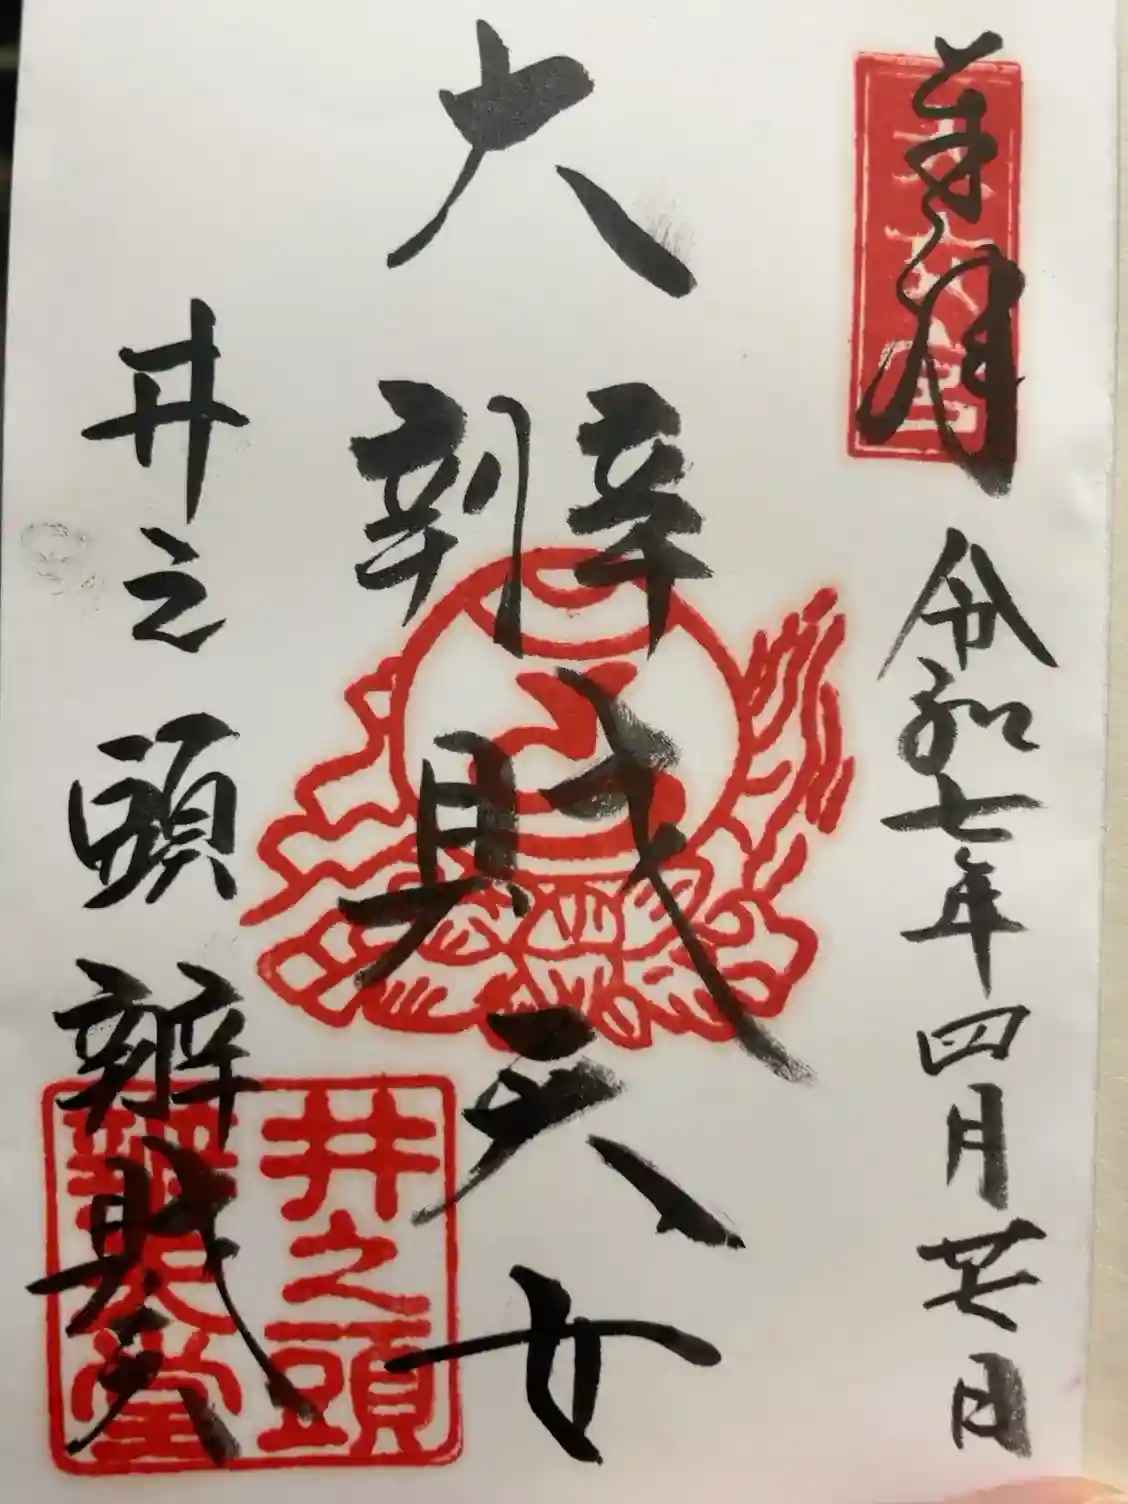 奉拝
令和七年四月廿七日
大辨財天女
井之頭辨財天
井之頭
辨天堂